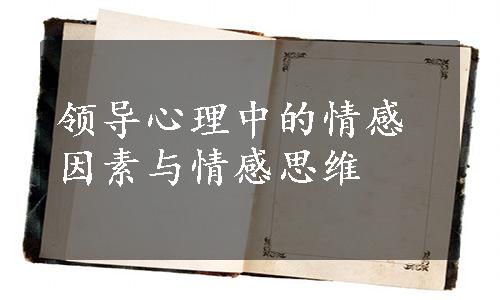 领导心理中的情感
因素与情感思维